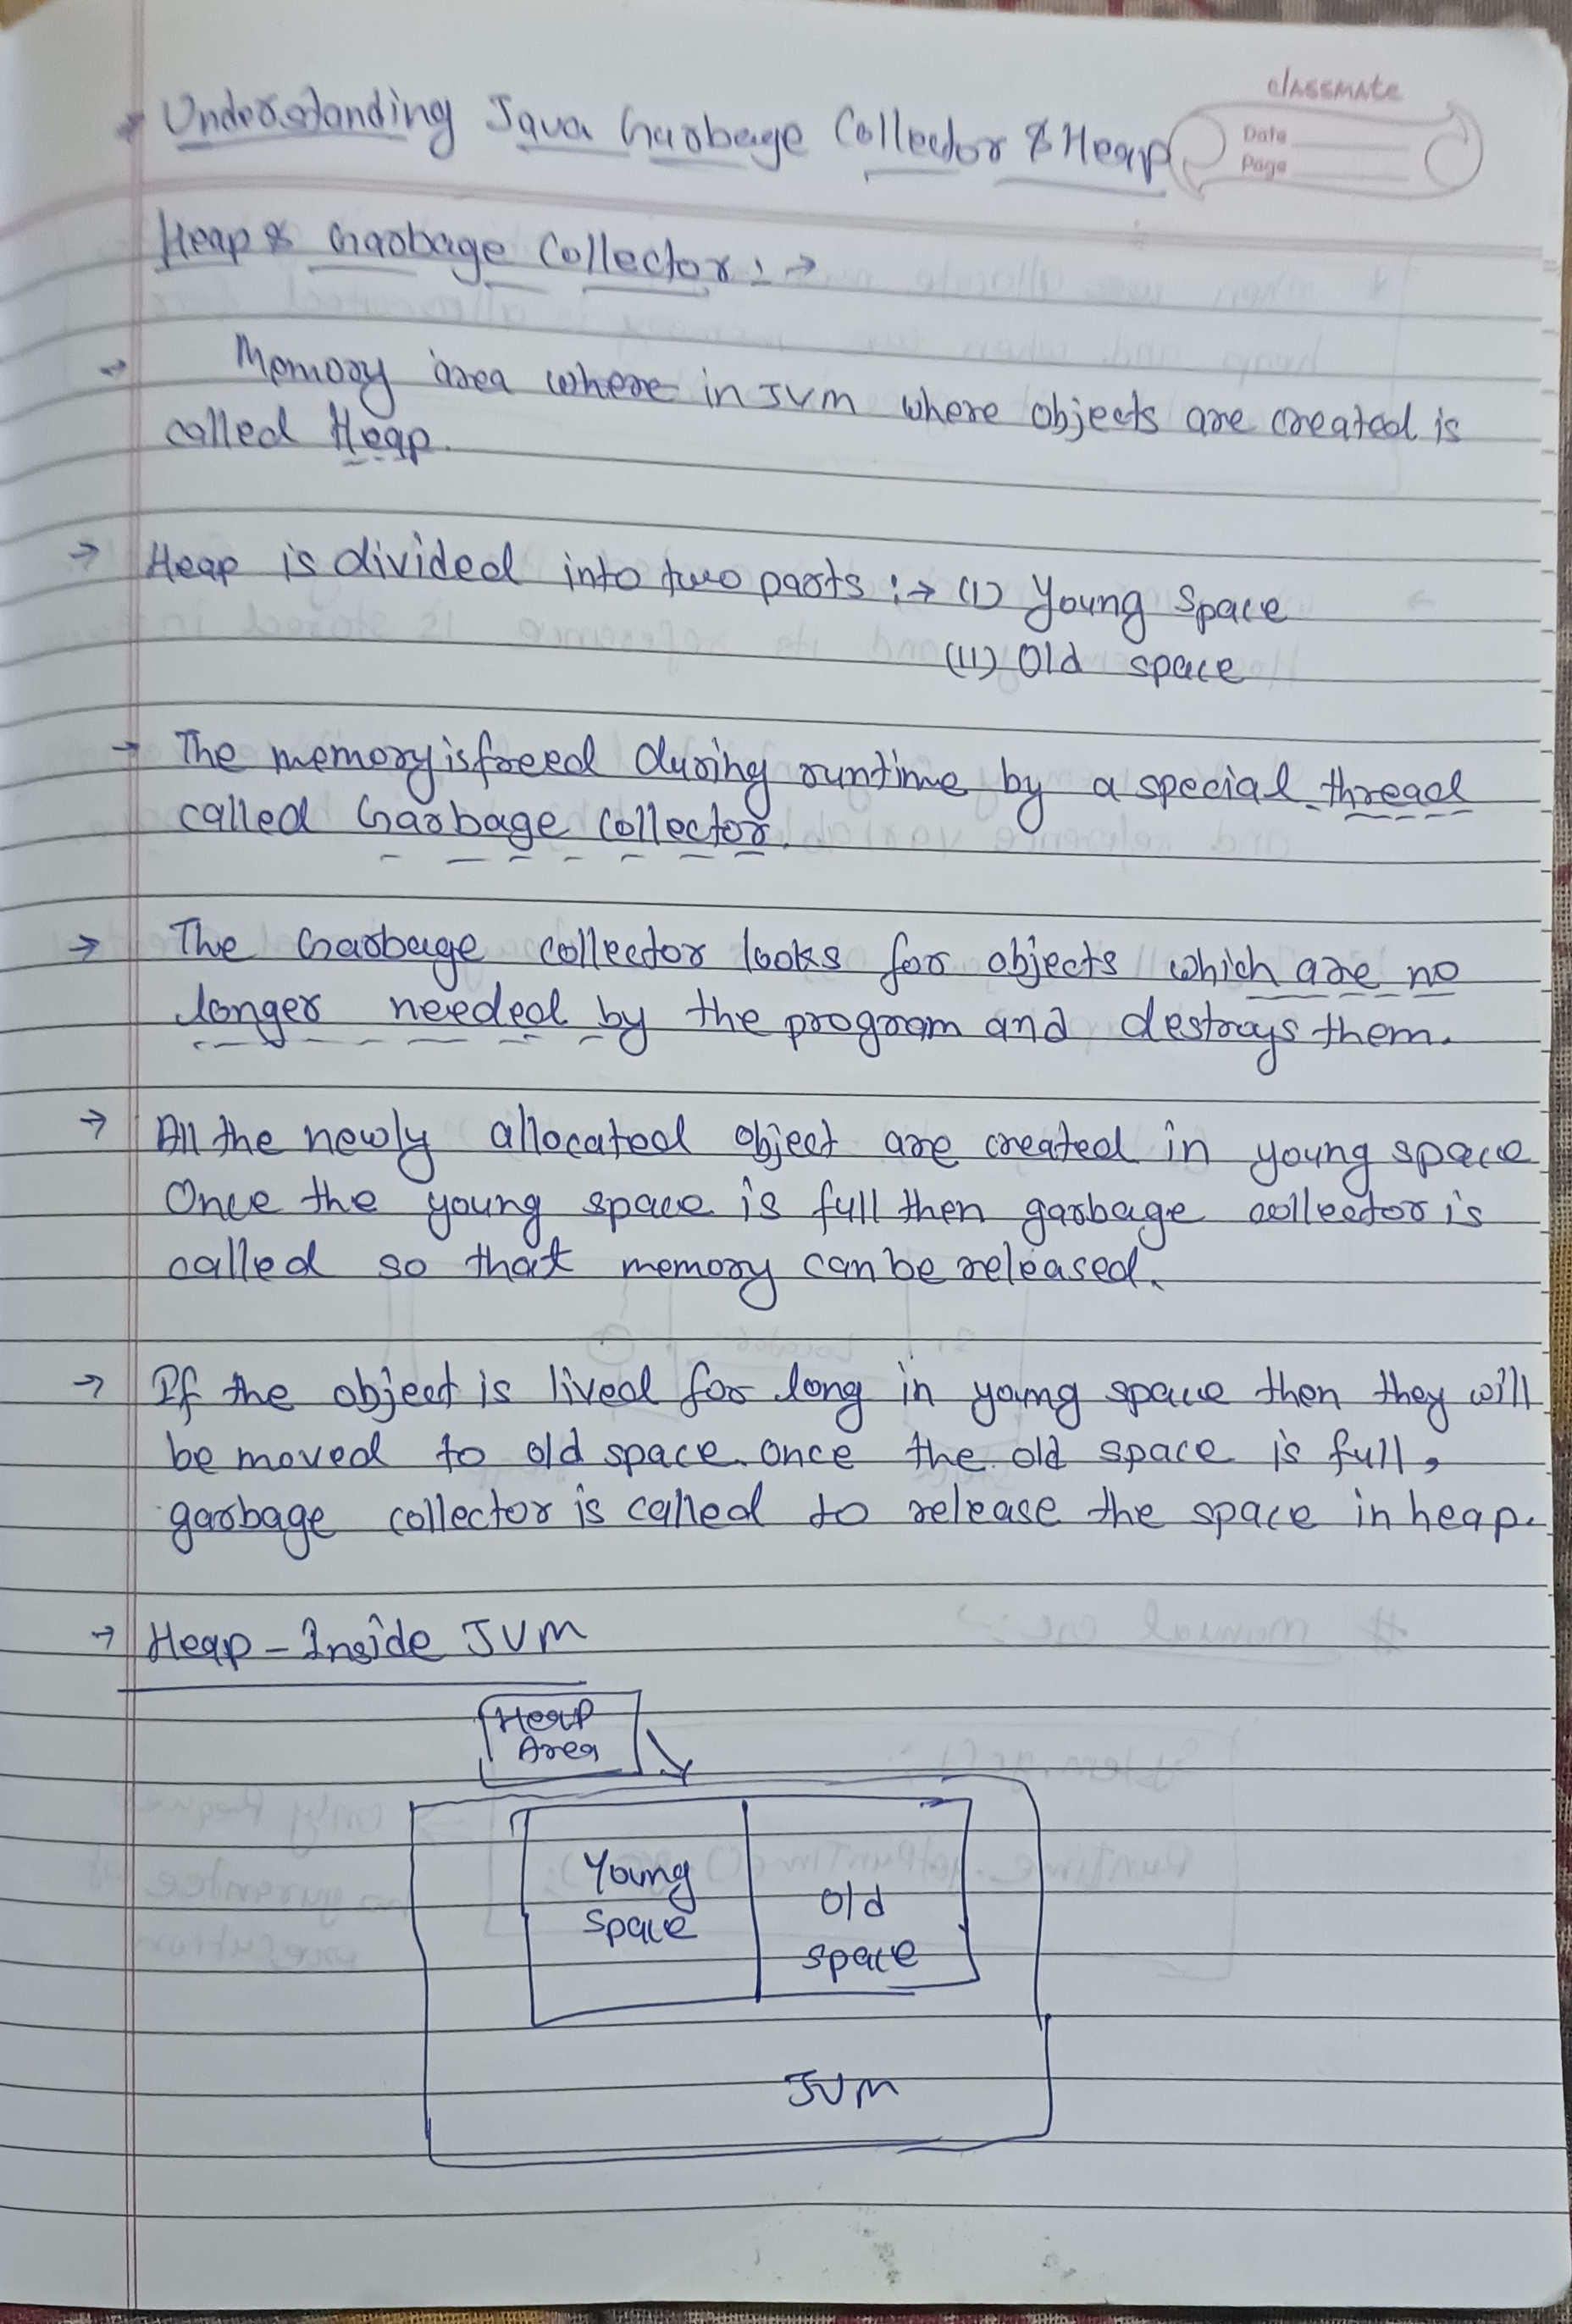 * Understanding Java Garbage Collector & Heap
classmate
Date
Page
Heap & Garbage Collector :→
→ Memory area where in JVM where objects are created is
called Heap.
→ Heap is divided into two parts :→ (I) Young Space
(II) Old space
→ The memory is freed during runtime by a special thread
called Garbage Collector.
→ The Garbage collector looks for objects which are no
longer needed by the program and destroys them.
→ All the newly allocated object are created in young space
Once the young space is full then garbage collector is
called so that memory can be released.
→ If the object is lived for long in young space then they will
be moved to old space. once the old space is full,
garbage collector is called to release the space in heap.
→ Heap - Inside JVM
Heap
Area
Young
space
old
space
JVM